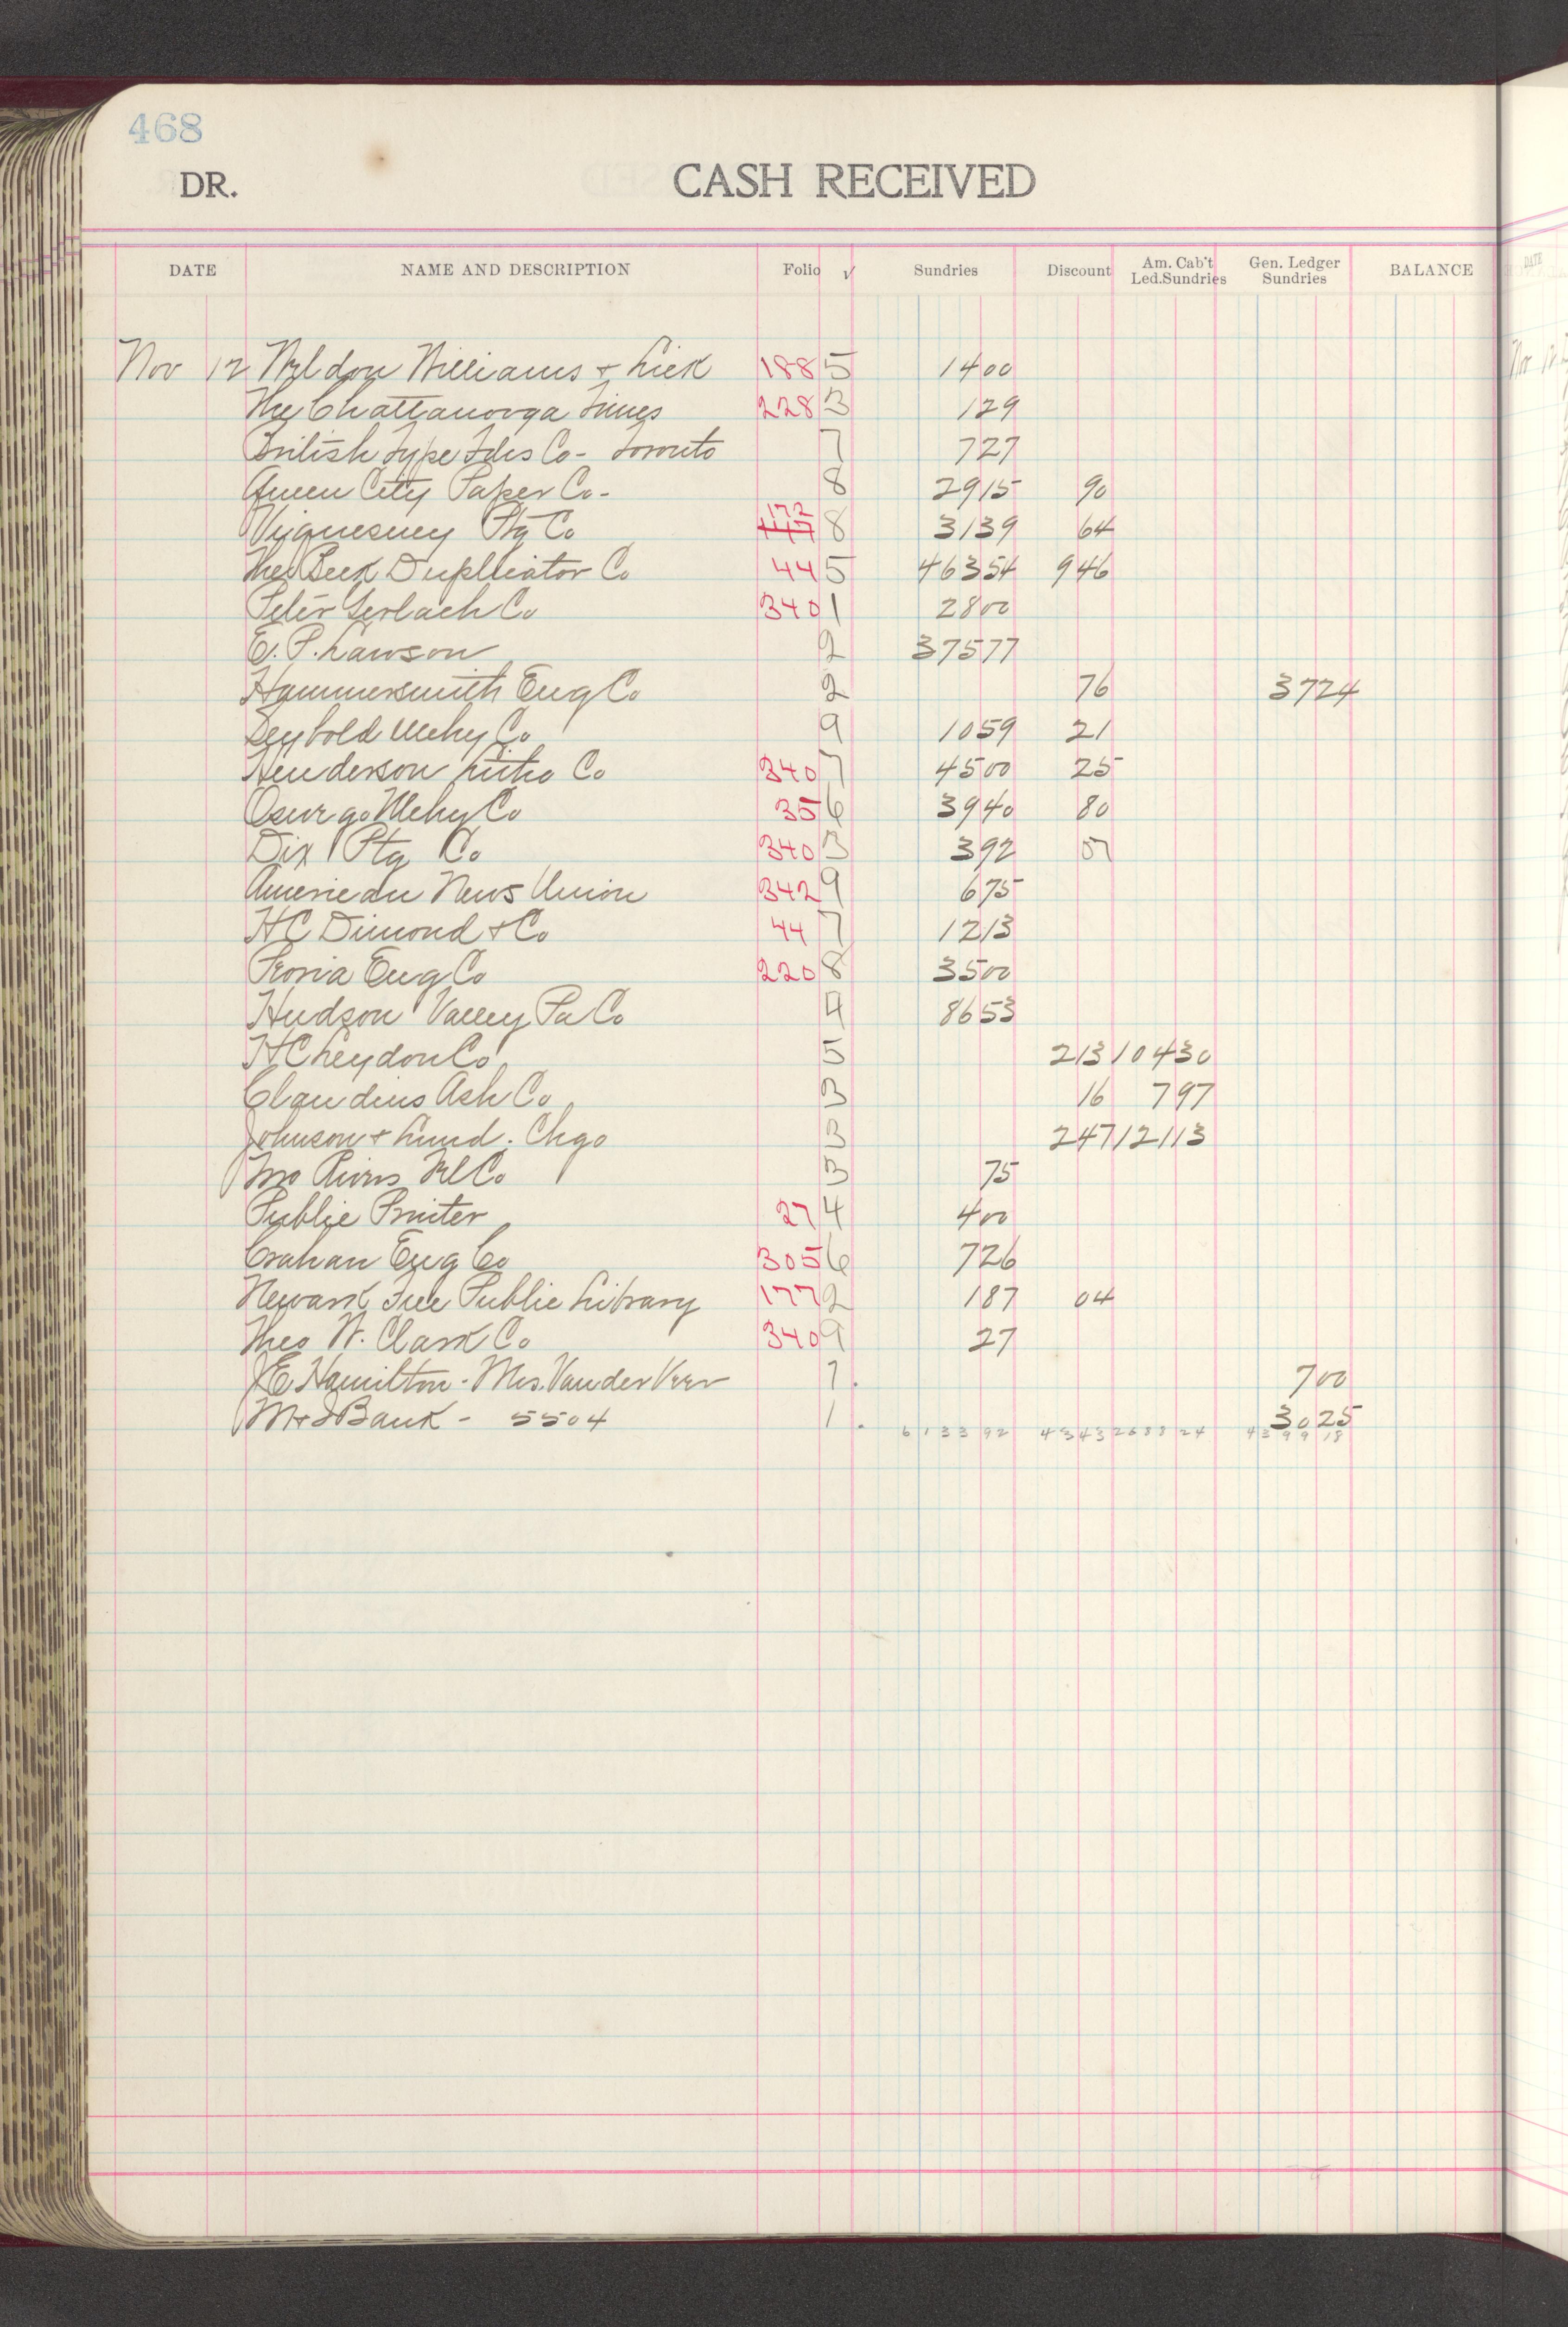 468
DR. CASH RECEIVED
DATE NAME AND DESCRIPTION Folio √ Sundries Discount Am. Cab't Led.Sundries Gen. Ledger Sundries BALANCE
Nov 12 Weldon Williams & Lick 188 5 14 00
The Chattanooga Times 228 3 1 29
British Type Fdrs Co - Toronto 7 7 27
Queen City Paper Co - 8 29 15 90
Viquesney Ptg Co 172 8 31 39 64
The Beck Duplicator Co 44 5 463 54 9 46
Peter Gerlach Co 340 1 28 00
E. P. Lawson 2 375 77
Hammersmith Eng Co 2 76 37 24
Seybold Mchy Co 9 10 59 21
Henderson Litho Co 340 7 45 00 25
Oswego Mchy Co 35 6 39 40 80
Dix Ptg Co 340 3 3 92 07
American News Union 342 9 6 75
HC Dimond & Co 44 7 12 13
Peoria Eng Co 220 8 35 00
Hudson Valley Pa Co 4 86 53
HC Leydon Co 5 2 13 104 30
Claudius Ash Co 3 16 7 97
Johnson & Lund. Chgo 3 2 47 121 13
Two Rivers Co 3 75
Public Printer 27 4 4 00
Crahan Eng Co 305 6 7 26
Newark Free Public Library 177 2 1 87 04
Theo W. Clark Co 340 9 27
JE Hamilton - Mrs. VanderVeer 7. 7 00
M & I Bank - 5504 1. 30 25
6 133 92 43 43 2688 24 4399 18